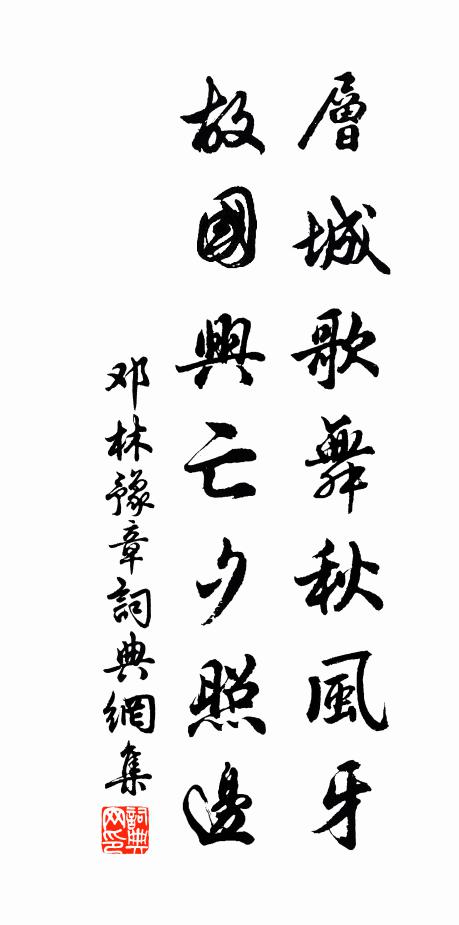 層城歌舞秋風牙
故國興亡夕照邊
邓林豫章詞典網集
詞典
网印